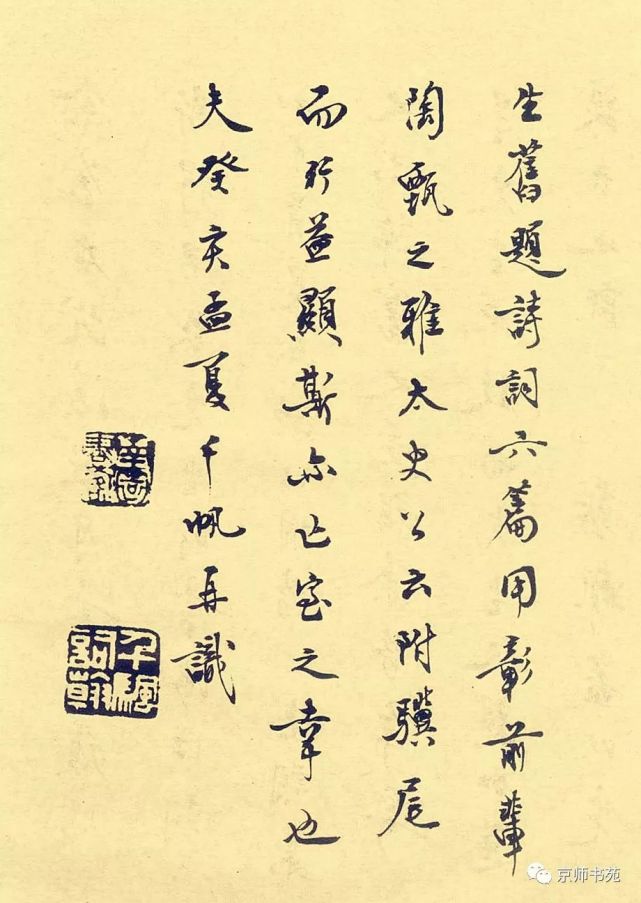 生舊題詩詞六篇用彰前輩
陶甄之雅太史公云附驥尾
而行益顯斯亦亡室之幸也
夫癸亥孟夏千帆再識
千帆詞翰
京师书苑